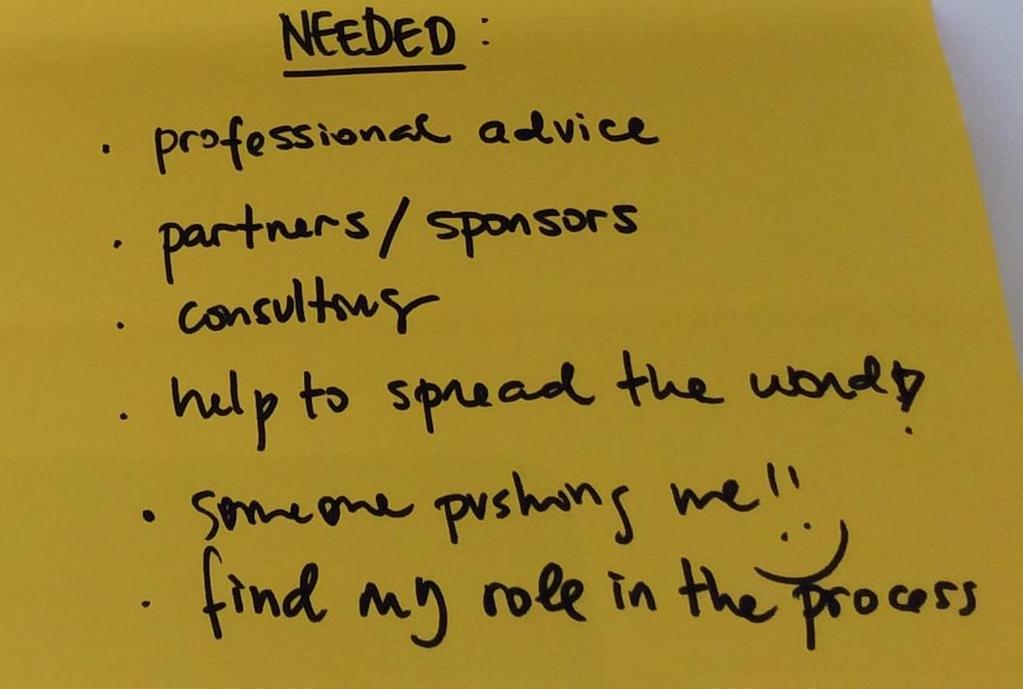 NEEDED:
· professional advice
· partners/sponsors
· consulting
· help to spread the word!
· someone pushing me!! :)
· find my role in the process